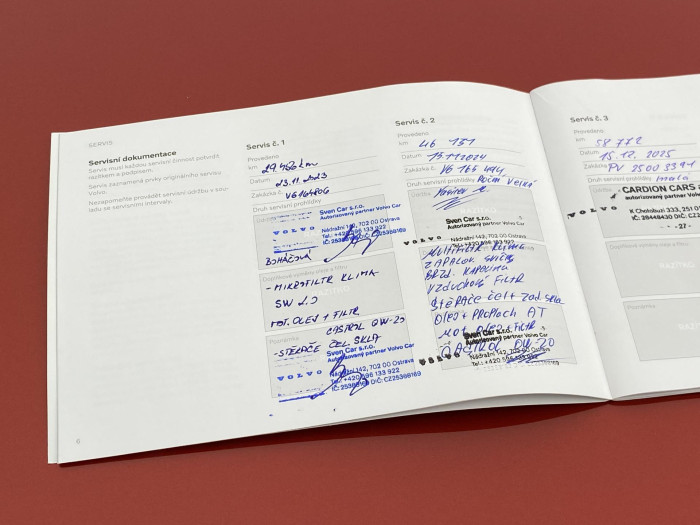 SERVIS
Servisní dokumentace
Servis musí každou servisní činnost potvrdit
razítkem a podpisem.
Servis zaznamená prvky originálního servisu
Volvo.
Nezapomeňte provádět servisní údržbu v sou-
ladu se servisními intervaly.
6
Servis č. 1
Provedeno
km 29.486 km
Datum 23.11.2023
Zakázka č. V6164806
Druh servisní prohlídky
Sven Car s.r.o.
Autorizovaný partner Volvo Car
VOLVO
Nádražní 142, 702 00 Ostrava
Tel.: +420 596 133 922
IČ: 25368169 DIČ: CZ25368169
BOHÁČOVÁ
Doplňkové výměny oleje a filtru
- MIKROFILTR KLIMA
SW 2.0
MOT. OLEJ + FILTR
CASTROL 0W-20
Poznámka
- STĚRAČE ČEL. SKLA
Sven Car s.r.o.
Autorizovaný partner Volvo Car
VOLVO
Nádražní 142, 702 00 Ostrava
Tel.: +420 596 133 922
IČ: 25368169 DIČ: CZ25368169
Servis č. 2
Provedeno
km 46 151
Datum
Zakázka č. V6 165 494
Druh servisní prohlídky ROČNÍ VELKÁ
Sven Car s.r.o.
Autorizovaný partner Volvo Car
VOLVO
Nádražní 142, 702 00 Ostrava
MULTIFILTR KLIMA
ZAPALOV. SVÍČKY
BRZD. KAPALINA
VZDUCHOVÝ FILTR
STĚRAČE ČEL + ZAD. SKLA
OLEJ + PROPLACH AT
MOT. OLEJ + FILTR
CASTROL 0W-20
Sven Car s.r.o.
Autorizovaný partner Volvo Car
VOLVO
Nádražní 142, 702 00 Ostrava
Servis č. 3
Provedeno
km 58 772
Datum 15.12.2025
Zakázka č. PV 25 00 3391
Druh servisní prohlídky malá
CARDION CARS
autorizovaný partner Vo
VOLVO
K Chotobuzi 333, 251 0
IČ: 28448430 DIČ: CZ
- 27 -
RAZÍTKO
Poznámka
RAZÍTKO